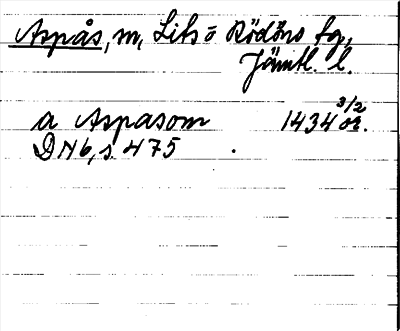 Aspås, m, Lits o Rödöns tg,
Jämtl. l.
a Aspasom 1434 3/2 or.
DN 6, s. 475